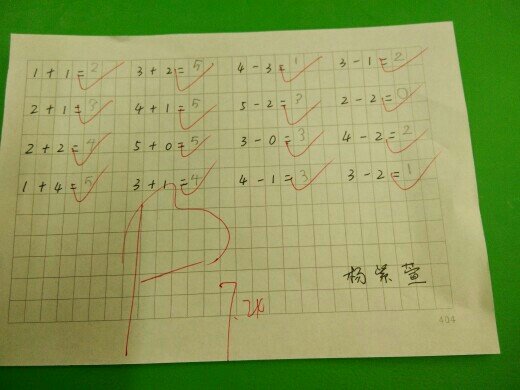 1 + 1 = 2 3 + 2 = 5 4 - 3 = 1 3 - 1 = 2
2 + 1 = 3 4 + 1 = 5 5 - 2 = 3 2 - 2 = 0
2 + 2 = 4 5 + 0 = 5 3 - 0 = 3 4 - 2 = 2
1 + 4 = 5 3 + 1 = 4 4 - 1 = 3 3 - 2 = 1
杨紫萱
7.24
404